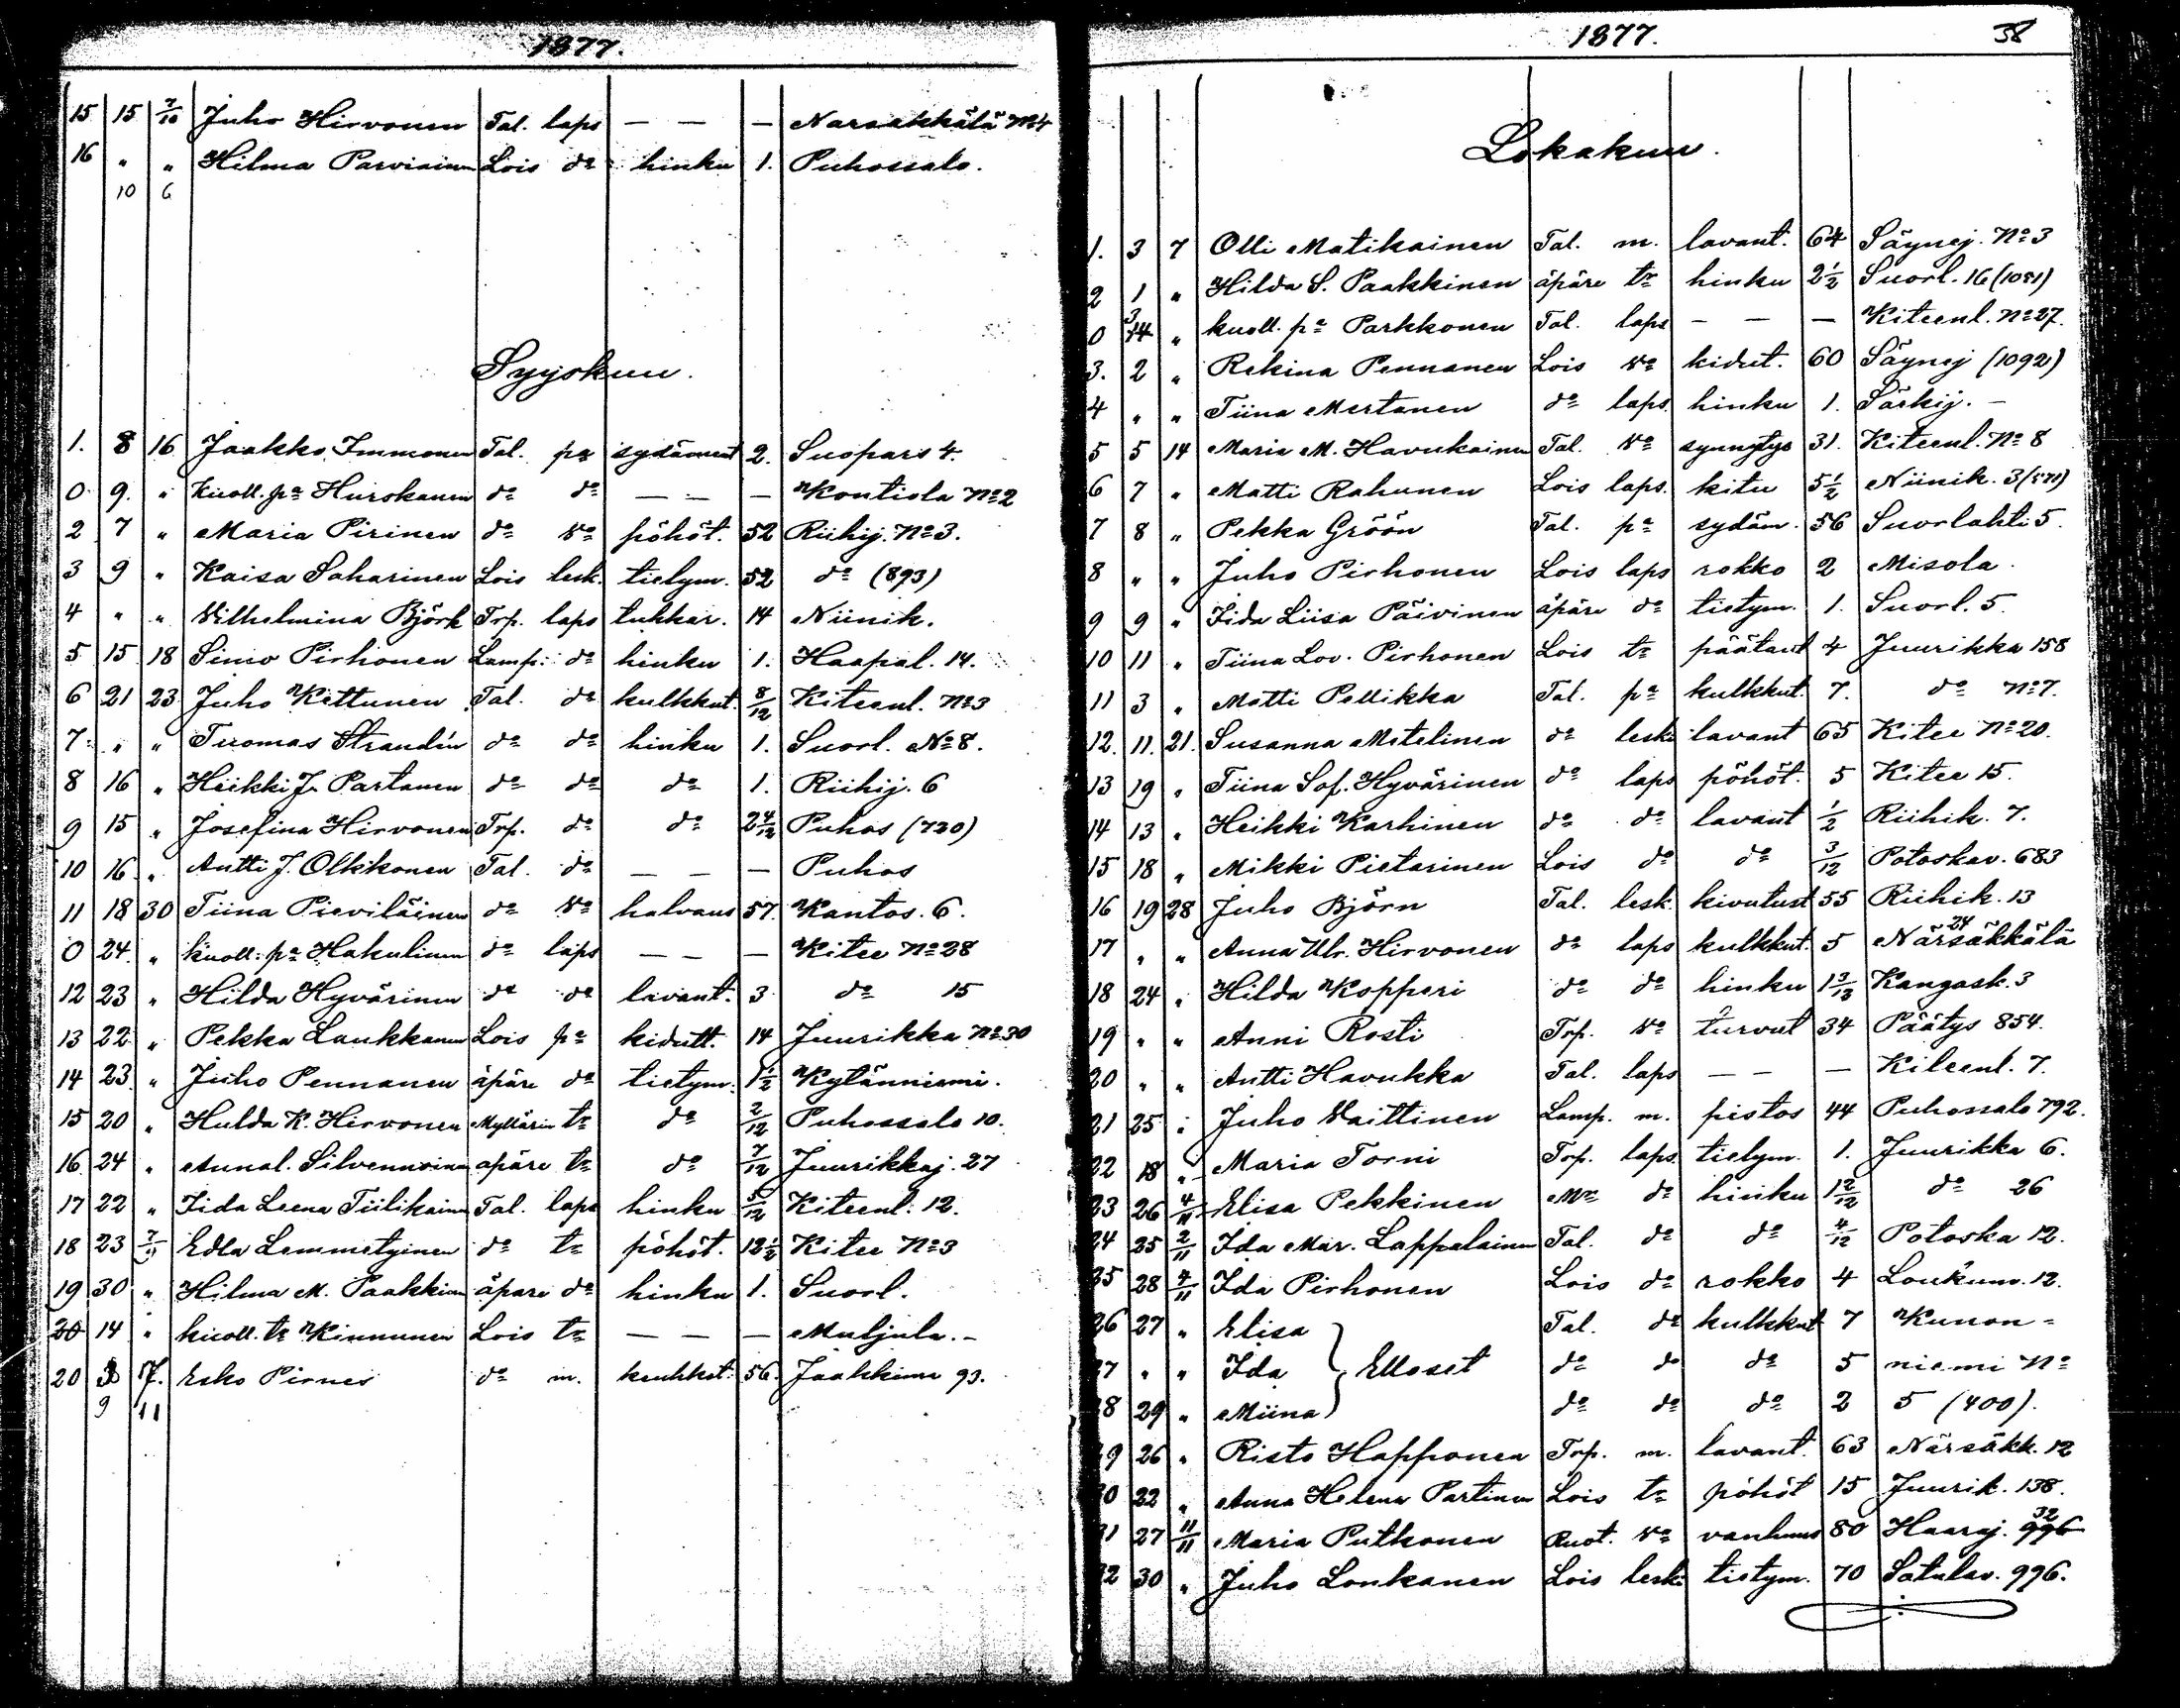 1877.
15 15 7/10 Juho Hirvonen Tal. laps — — — Narsakkälä No 4
16 " " Hilma Parviainen Lois do hinku 1. Puhossalo.
10 6
Syyskuu.
1. 8 16 Jaakko Immonen Tal. pa sydäment 2. Suopars 4.
0 9. " kuoll. pa Hurskanen do do — — — Kontiola No 2
2 7 " Maria Pirinen do va pöhöt. 52 Riihij. No 3.
3 9 " Kaisa Saharinen Lois lesk. tietym. 52 do (893)
4 " " Vilhelmina Björk Trp. laps tukkar. 14 Niinik.
5 15 18 Simo Pirhonen Lamp: do hinku 1. Haapal. 14.
6 21 23 Juho Kettunen Tal. do kulkkut. 8/12 Kiteenl. No 3
7 " " Tuomas Strandin do do hinku 1. Suorl. No 8.
8 16 " Heikki J. Partanen do do do 1. Riihij. 6
9 15 " Josefina Hirvonen Trp. do do 2 4/12 Puhos (720)
10 16 " Antti J. Olkkonen Tal. do — — — Puhos
11 18 30 Tiina Pieviläinen do va halvaus 57. Kantos. 6.
0 24. " kuoll. pa Hakulinen do laps — — — Kitee No 28
12 23 " Hilda Hyvärinen do do lavant. 3 do 15
13 22 " Pekka Laukkanen Lois pa kidutt. 14 Juurikka No 30
14 23 " Juho Pennanen äpäre do tietym. 1 1/2 Kytänniemi.
15 20 " Hulda K. Hirvonen Myllärin tr do 2/12 Puhossalo 10.
16 24 " Annal. Silvennoinen äpäre tr do 7/12 Juurikkaj. 27
17 22 " Iida Leena Tiilikainen Tal. laps hinku 5/12 Kiteenl. 12.
18 23 7/10 Edla Lemmetyinen do tr pöhöt. 12 1/2 Kitee No 3
19 30 " Hilma M. Paakkinen äpäre do hinku 1. Suorl.
20 14 " kuoll. tr Kinnunen Lois tr — — — Muljula. -
20 7. Esko Pirnes do m. keuhkot. 56. Jaakkima 93.
9 11
1877. 38
Lokakuu.
1. 3 7 Olli Matikainen Tal. m. lavant. 64 Säynej. No 3
2 1 " Hilda S. Paakkinen äpäre tr hinku 2 1/2 Suorl. 16 (1081)
3
0 14 " kuoll. pa Parkkonen Tal. laps — — — Kiteenl. No 27.
3. 2 " Rekina Pennanen Lois va kidut. 60 Säynej (1092)
4 " " Tiina Mertanen do laps. hinku 1. Särkij. -
5 5 14 Maria M. Havukainen Tal. va synnytys 31. Kiteenl. No 8
6 7 " Matti Rahunen Lois laps. kitu 5 1/2 Niinik. 3 (571)
7 8 " Pekka Gröön Tal. pa sydäm. 56 Suorlahti 5.
8 " " Juho Pirhonen Lois laps rokko 2 Misola.
9 9 " Iida Liisa Päivinen äpäre do tietym. 1. Suorl. 5.
10 11 " Tiina Lov. Pirhonen Lois tr päätaut 4 Juurikka 158
11 3 " Matti Pellikka Tal. pa kulkkut. 7. do No 7.
12. 11. 21. Susanna Metelinen do leski lavant 65 Kitee No 20.
13 19 " Tiina Sof. Hyvärinen do laps pöhöt. 5 Kitee 15.
14 13 " Heikki Karhinen do do lavant 1/2 Riihik. 7.
15 18 " Mikki Pietarinen Lois do do 3/12 Potoskav. 683
16 19 28 Juho Björn Tal. lesk. kivutust 55 Riihik. 13
24
17 " " Anna Ulr. Hirvonen do laps kulkkut. 5 Närsäkkälä
18 24 " Hilda Kopperi do do hinku 1 3/12 Kangask. 3
19 " " Anni Rosti Trp. va turvut 34 Päätys 854.
20 " " Antti Havukka Tal. laps — — — Kiteenl. 7.
21 25 " Juho Vaittinen Lamp. m. pistos 44 Puhossalo 792.
22 18 " Maria Torni Trp. laps. tietym. 1. Juurikka 6.
23 26 4/11 Elisa Pekkinen do hinku 1 2/12 do 26
24 25 2/11 Ida Mar. Lappalainen Tal. do do 4/12 Potoska 12.
25 28 4/11 Ida Pirhonen Lois do rokko 4 Loukunv. 12.
26 27 " Elisa Tal. do kulkkut 7 Kunon-
27 " " Ida } Elloset do do do 5 niemi No
28 29 " Miina do do do 2 5 (400).
29 26 " Risto Happonen Trp. m. lavant. 63 Närsäkk. 12
30 22 " Anna Helena Partinen Lois tr pöhöt 15 Juurik. 138.
32
31 27 11/11 Maria Putkonen Ruot. va vanhuus 80 Haaraj. 996
32 30 " Juho Lonkanen Lois leski tietym. 70 Satulav. 996.